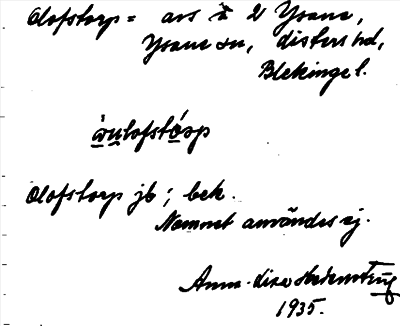 Olofstorp = avs å 2 Ysane,
Ysane sn, Listers hd,
Blekinge l.
ωulofstórp
Olofstorp jb; bek.
Namnet användes ej.
Anna-Lisa
1935.